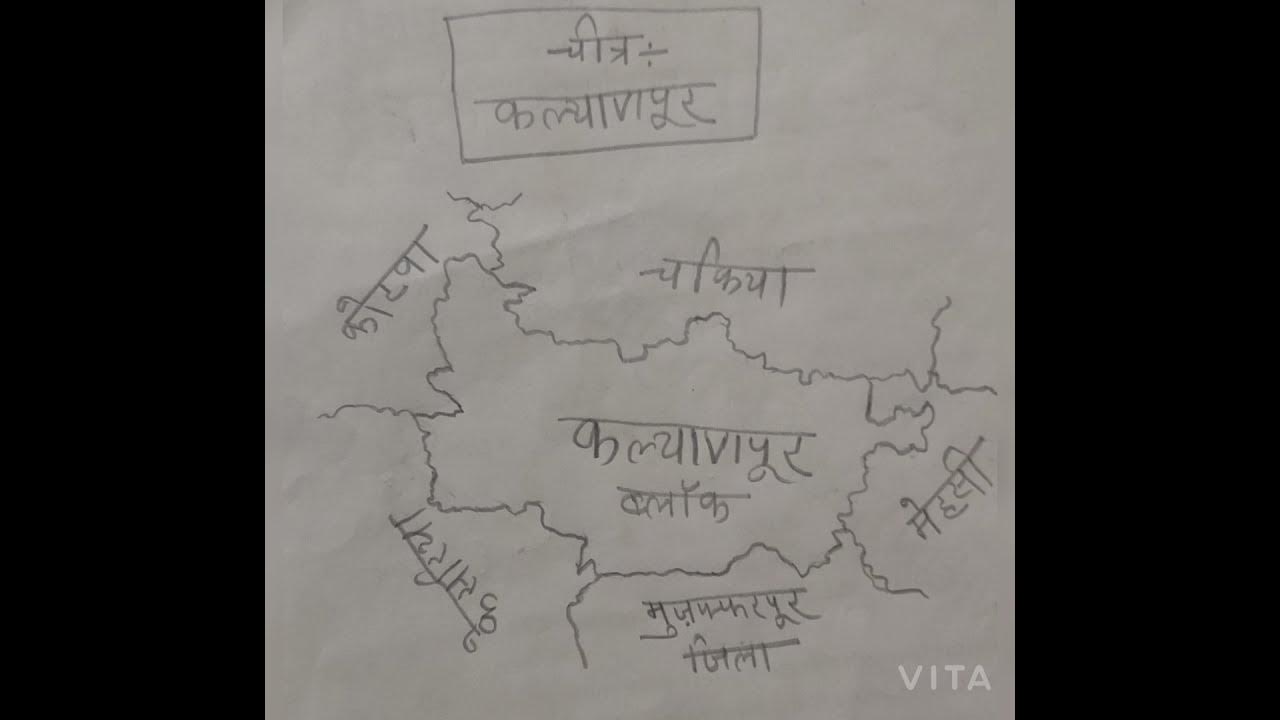 चीत्र ÷
कल्याणपूर
कोटवा
चकिया
कल्याणपूर
ब्लॉक
मेहसी
मुज़फ्फरपूर
जिला
VITA